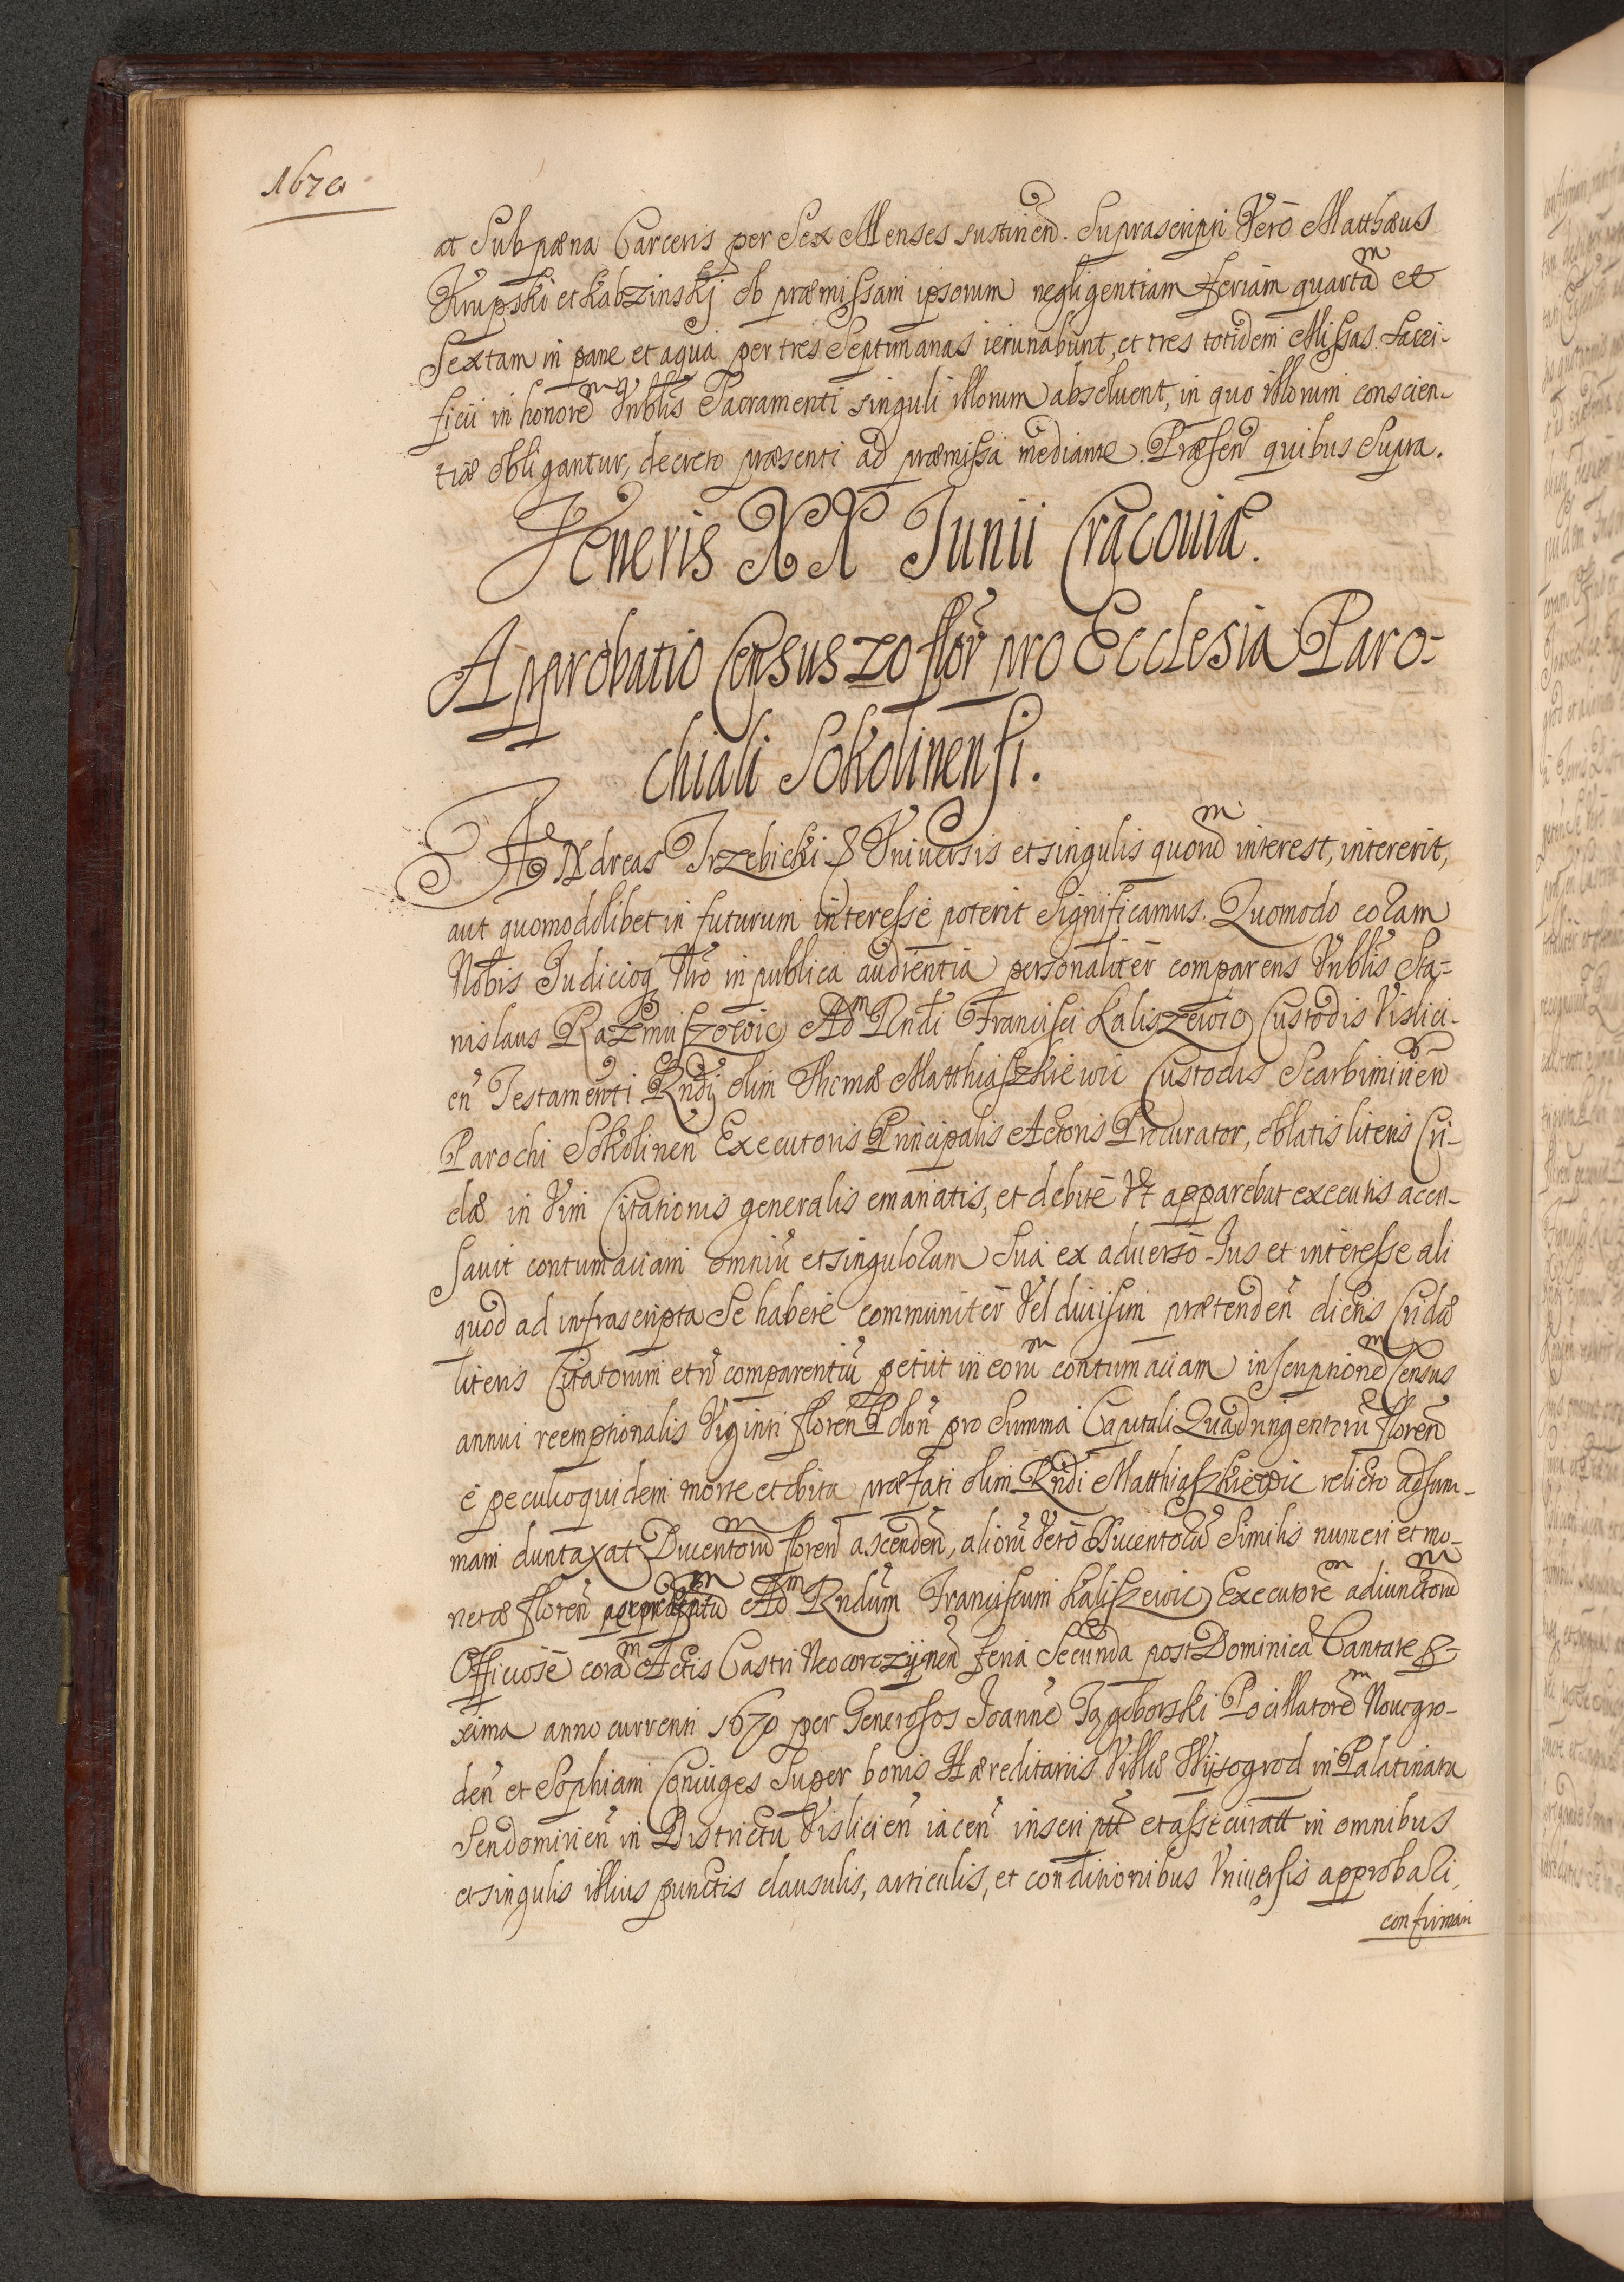 1670
at Sub pæna Carceris per Sex Menses sustinen̄. Suprascripti Vero Matthæus
Krupski et Kabzinskj ob præmissam ipsorum negligentiam feriam quartam et
Sextam in pane et aqua per tres Septimanas ieiunabunt, et tres totidem Missas Sacri-
ficii in honorem Vnblis Sacramenti singuli illorum absoluent, in quo illorum conscien-
tiæ obligantur, decreto præsenti ad præmissa mediante. Præsen̄ quibus Supra.
Veneris XX Junii Cracouiæ.
Approbatio Census 20 flor̄ pro Ecclesia Paro-
chiali Sokolinensi.
ANdreas Trzebicki & Vniuersis et singulis quorum interest, intererit,
aut quomodolibet in futurum interesse poterit Significamus. Quomodo coram
Nobis Judicioq̨ Nro in publica audientia personaliter comparens Vnblis Sta-
nislaus Razmuszowic Adm Rndi Francisci Kaliszewic Custodis Vislici-
en̄ Testamenti Rndi olim Thomæ Matthiaszkiewic Custodis Scarbimirien̄
Parochi Sokolinen Executoris Principalis Actoris Procurator, oblatis literis Cri-
dæ in Vim Citationis generalis emanatis, et debite Vt apparebat executis accu-
sauit contumaciam omniū et singulorum Sua ex aduerso Jus et interesse ali
quod ad infrascripta Se habere communiter Vel diuisim prætenden̄ dictis Cridæ
literis Citatorum et n̄ comparentiū petiit in eorum contumaciam inscriptionem Census
annui reemptionalis Viginti floren̄ Polon̄ pro Summa Capitali Quadringentorū floren̄
é peculio quidem morte et obitu præfati olim Rndi Matthiaszkiewic relicto ad sum-
mam duntaxat Ducentorum floren̄ ascenden̄, aliorū Vero Ducentorū Similis numeri et mo-
netæ floren̄ Adm Rndum Franciscum Kaliszewic Executorem adiunctorum
Officiose coram Actis Castri Neocorczÿnen̄ feria Secunda post Dominicā Cantare &
xima anno currenti 1670 per Generosos Joannē Jagoborski Pocillatorem Nouogro-
den̄ et Sophiam Coniuges Super bonis Hæreditariis Villæ Wÿsogrod in Palatinatu
Sendomirien̄ in Districtu Vislicien̄ iacen̄ inscriptt et assecuratt in omnibus
et singulis illius punctis clausulis, articulis, et conditionibus Vniuersis approbari,
confirmari